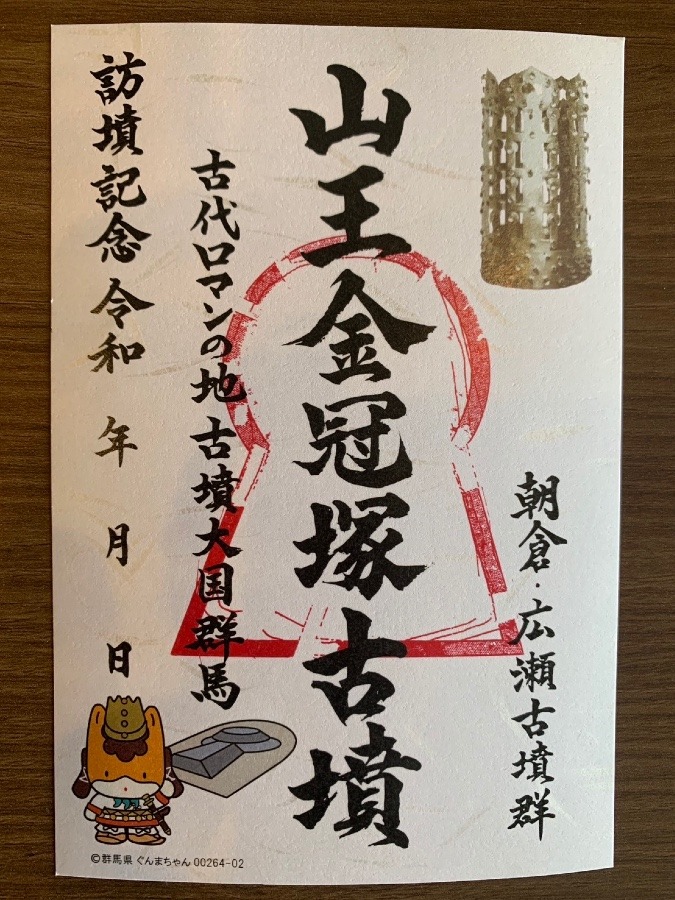 朝倉・広瀬古墳群
山王金冠塚古墳
古代ロマンの地 古墳大国群馬
訪墳記念 令和 年 月 日
©群馬県 ぐんまちゃん 00264-02